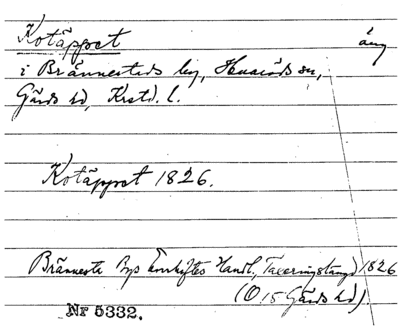 Kotäppet äng
i Brännestads by, Huaröds sn,
Gärds hd, Krstd. l.
Kotäppet 1826.
Bränneste Bys Handl., Taxeringslängd 1826
(O 15 Gärds hd)
Nr 5332.